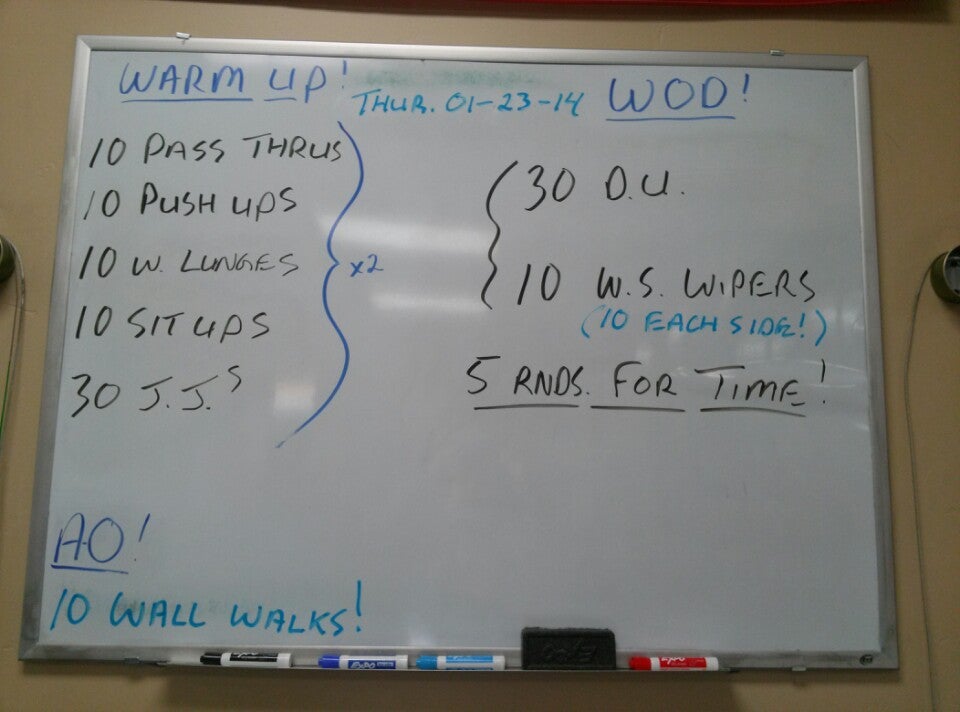 WARM UP!
THUR. 01-23-14
WOD!
10 PASS THRUS
10 PUSH UPS
10 W. LUNGES
10 SIT UPS
30 J.J.S
x2
30 D.U.
10 W.S. WIPERS
(10 EACH SIDE!)
5 RNDS. FOR TIME!
AO!
10 WALL WALKS!
EXPO
EXPO
EXPO